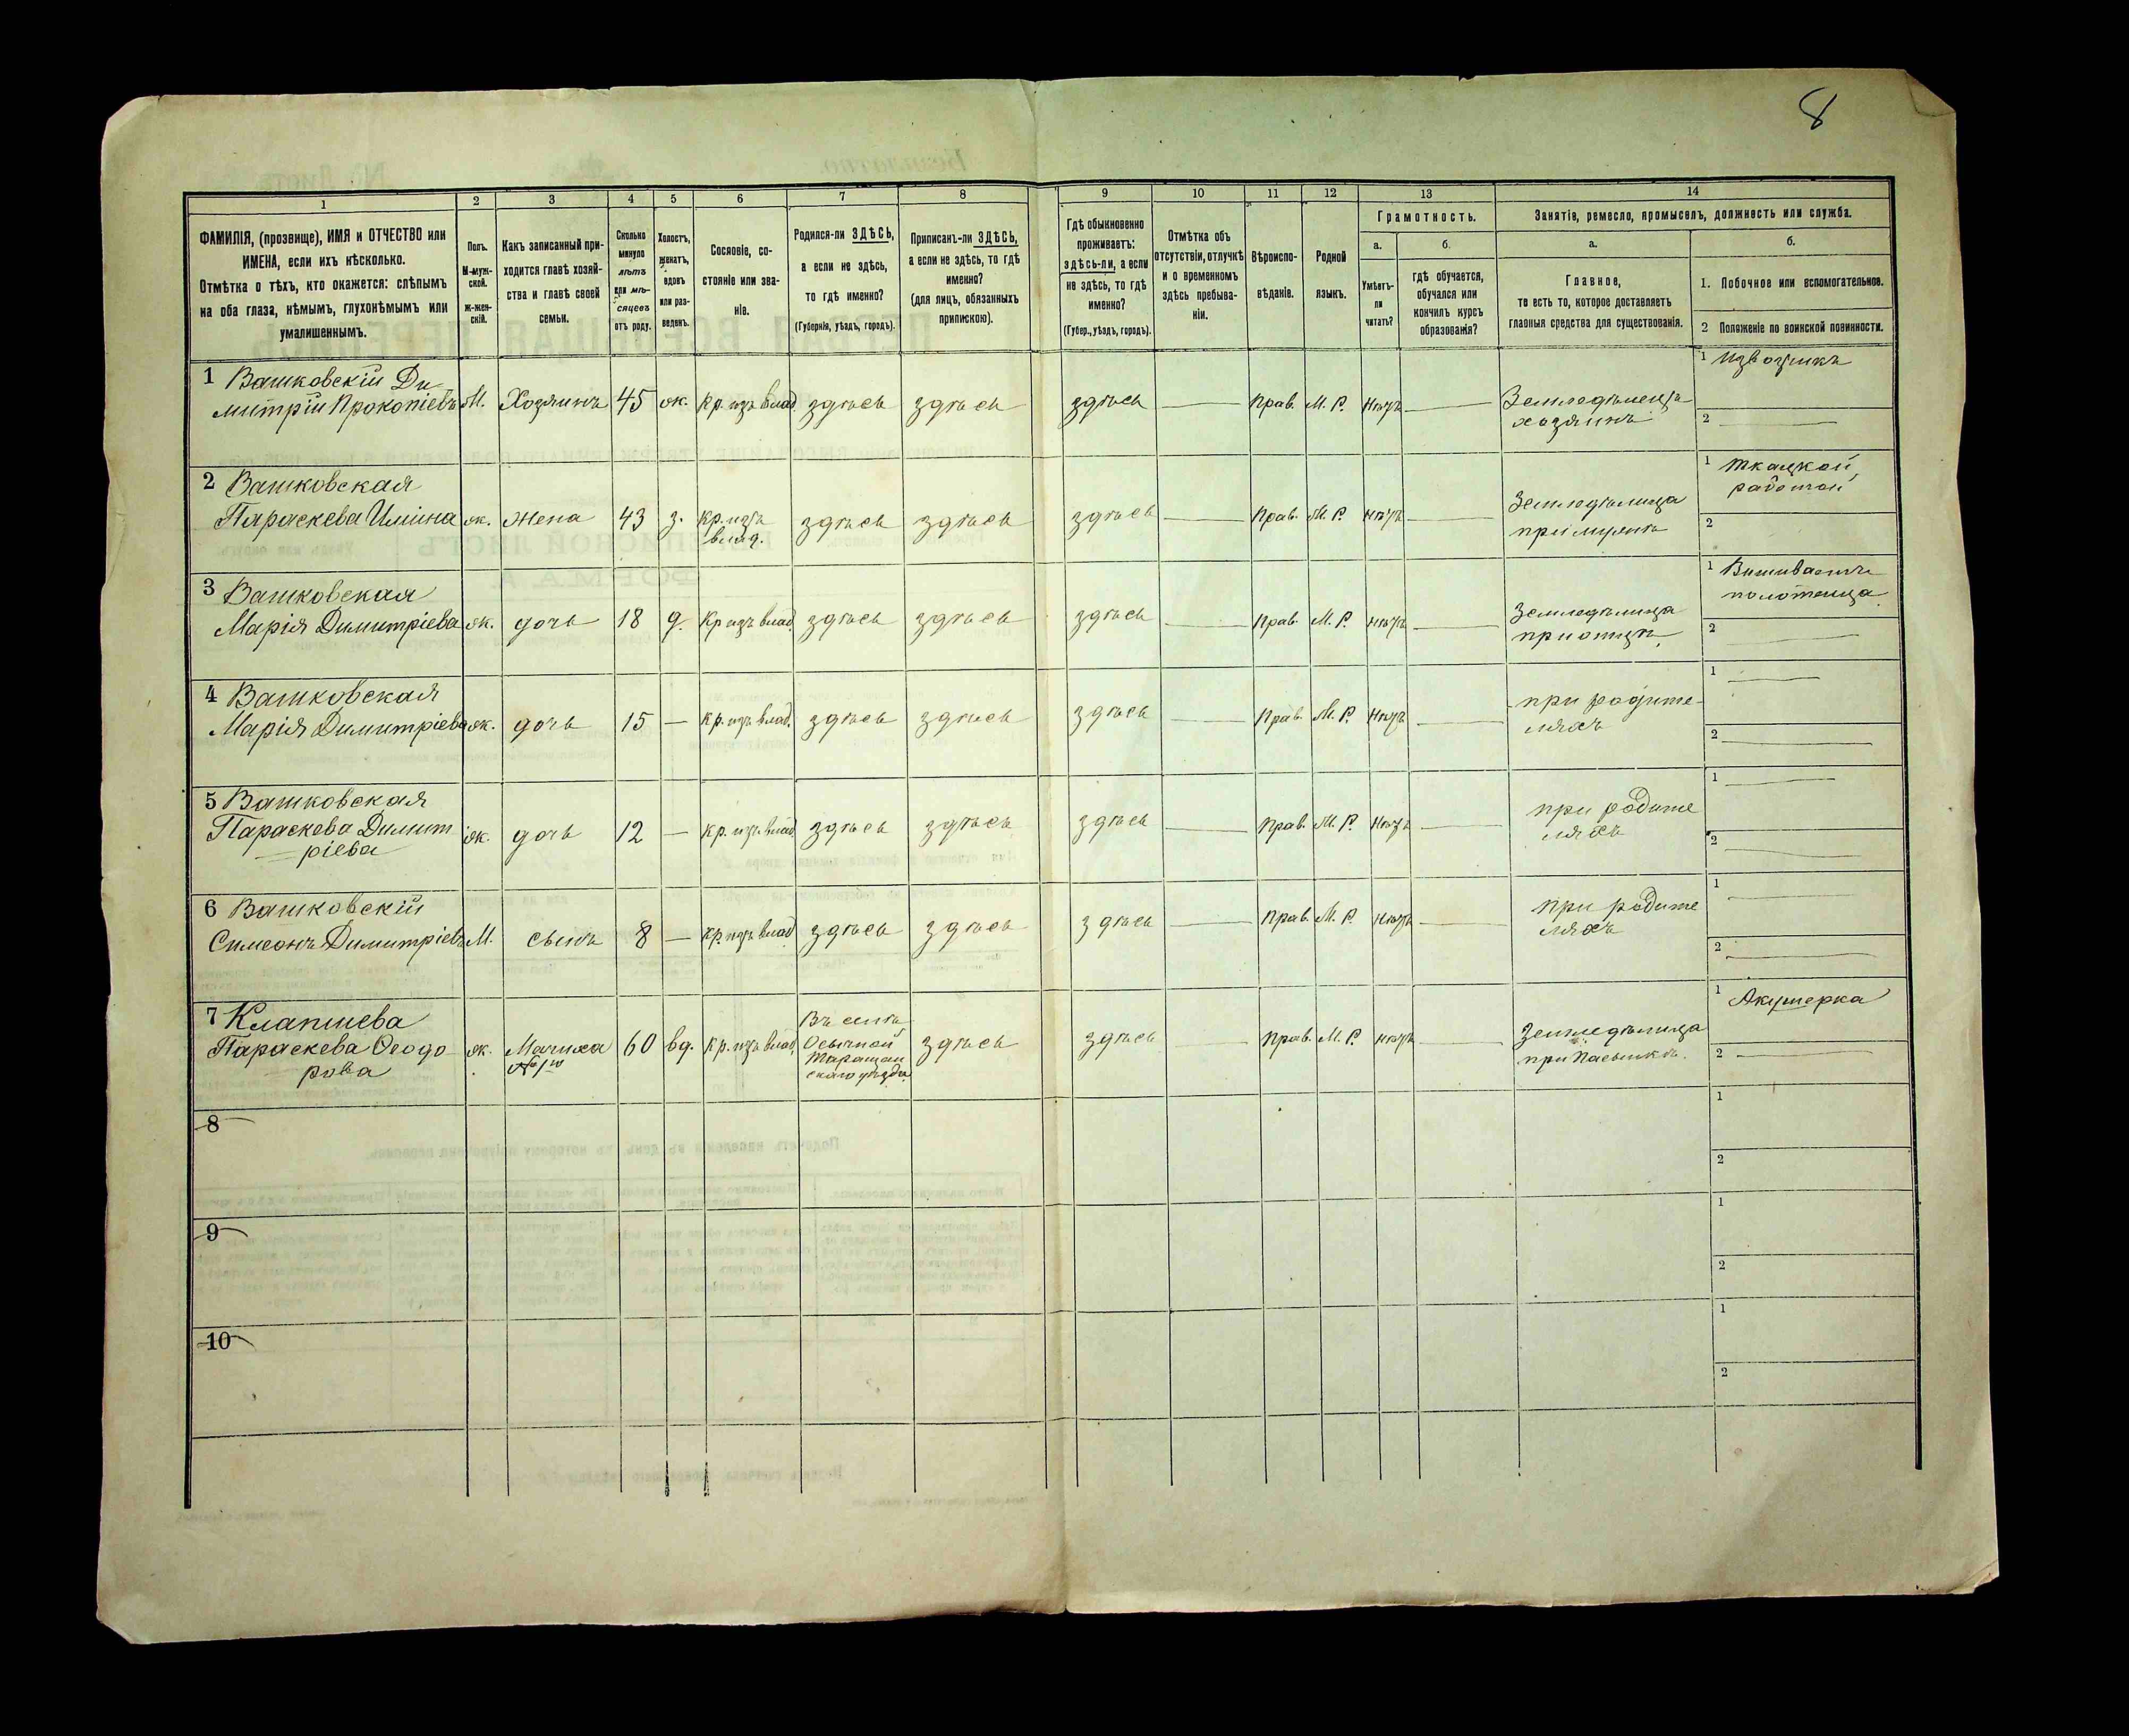 8
1
2
3
4
5
6
7
8
9
10
11
12
13
14
ФАМИЛІЯ, (прозвище), ИМЯ и ОТЧЕСТВО или
ИМЕНА, если ихъ нѣсколько.
Отмѣтка о тѣхъ, кто окажется: слѣпымъ
на оба глаза, нѣмымъ, глухонѣмымъ или
умалишеннымъ.
Полъ.
М-муж-
ской.
ж-жен-
скій.
Какъ записанный при-
ходится главѣ хозяй-
ства и главѣ своей
семьи.
Сколько
минуло
лѣтъ
или мѣ-
сяцевъ
отъ роду.
Холостъ,
женатъ,
вдовъ
или раз-
веденъ.
Сословіе, со-
стояніе или зва-
ніе.
Родился-ли ЗДѢСЬ,
а если не здѣсь,
то гдѣ именно?
(Губернія, уѣздъ, городъ).
Приписанъ-ли ЗДѢСЬ,
а если не здѣсь, то гдѣ
именно?
(для лицъ, обязанныхъ
припискою).
Гдѣ обыкновенно
проживаетъ:
здѣсь-ли, а если
не здѣсь, то гдѣ
именно?
(Губер., уѣздъ, городъ).
Отмѣтка объ
отсутствіи, отлучкѣ
и о временномъ
здѣсь пребыва-
ніи.
Вѣроиспо-
вѣданіе.
Родной
языкъ.
Грамотность.
а.
Умѣетъ-
ли
читать?
б.
гдѣ обучается,
обучался или
кончилъ курсъ
образованія?
Занятіе, ремесло, промыселъ, должность или служба.
а.
Главное,
то есть то, которое доставляетъ
главныя средства для существованія.
б.
1. Побочное или вспомогательное.
2 Положеніе по воинской повинности.
1 Вашковскій Ди
митрій Прокопіевъ М. Хозяинъ 45 ж. кр. изъ влад. здѣсь здѣсь здѣсь Прав. М. Р. Нѣтъ Земледѣлецъ
хозяинъ
1 Извозчикъ
2
2 Вашковская
Параскева Ильина ж. жена 43 з. кр. изъ
влад. здѣсь здѣсь здѣсь Прав. М. Р. нѣтъ Земледѣлица
при мужѣ
1 Ткацкой
работой
2
3 Вашковская
Марія Димитріева ж. дочь 18 д. кр изъ влад. здѣсь здѣсь здѣсь Прав. М. Р. нѣтъ Земледѣлица
при отцѣ
1 Вишиваетъ
полотенца
2
4 Вашковская
Марія Димитріева ж. дочь 15 — кр. изъ влад. здѣсь здѣсь здѣсь Прав. М. Р. Нѣтъ при родите-
ляхъ
1
2
5 Вашковская
Параскева Димит
ріева ж. дочь 12 — кр. изъ влад здѣсь здѣсь здѣсь Прав. М. Р. Нѣтъ при родите
ляхъ
1
2
6 Вашковскій
Симеонъ Димитріевъ М. сынъ 8 — кр. изъ влад здѣсь здѣсь здѣсь Прав. М. Р. Нѣтъ при родите
ляхъ
1
2
7 Клапшева
Параскева Ѳеодо
рова ж. Мачиха
№ 1го 60 вд. кр. изъ влад. Въ селѣ
Осычной
Таращан
скаго уѣзда здѣсь здѣсь Прав. М. Р. нѣтъ Земледѣлица
при пасынкѣ.
1 Акушерка
2
8
1
2
9
1
2
10
1
2